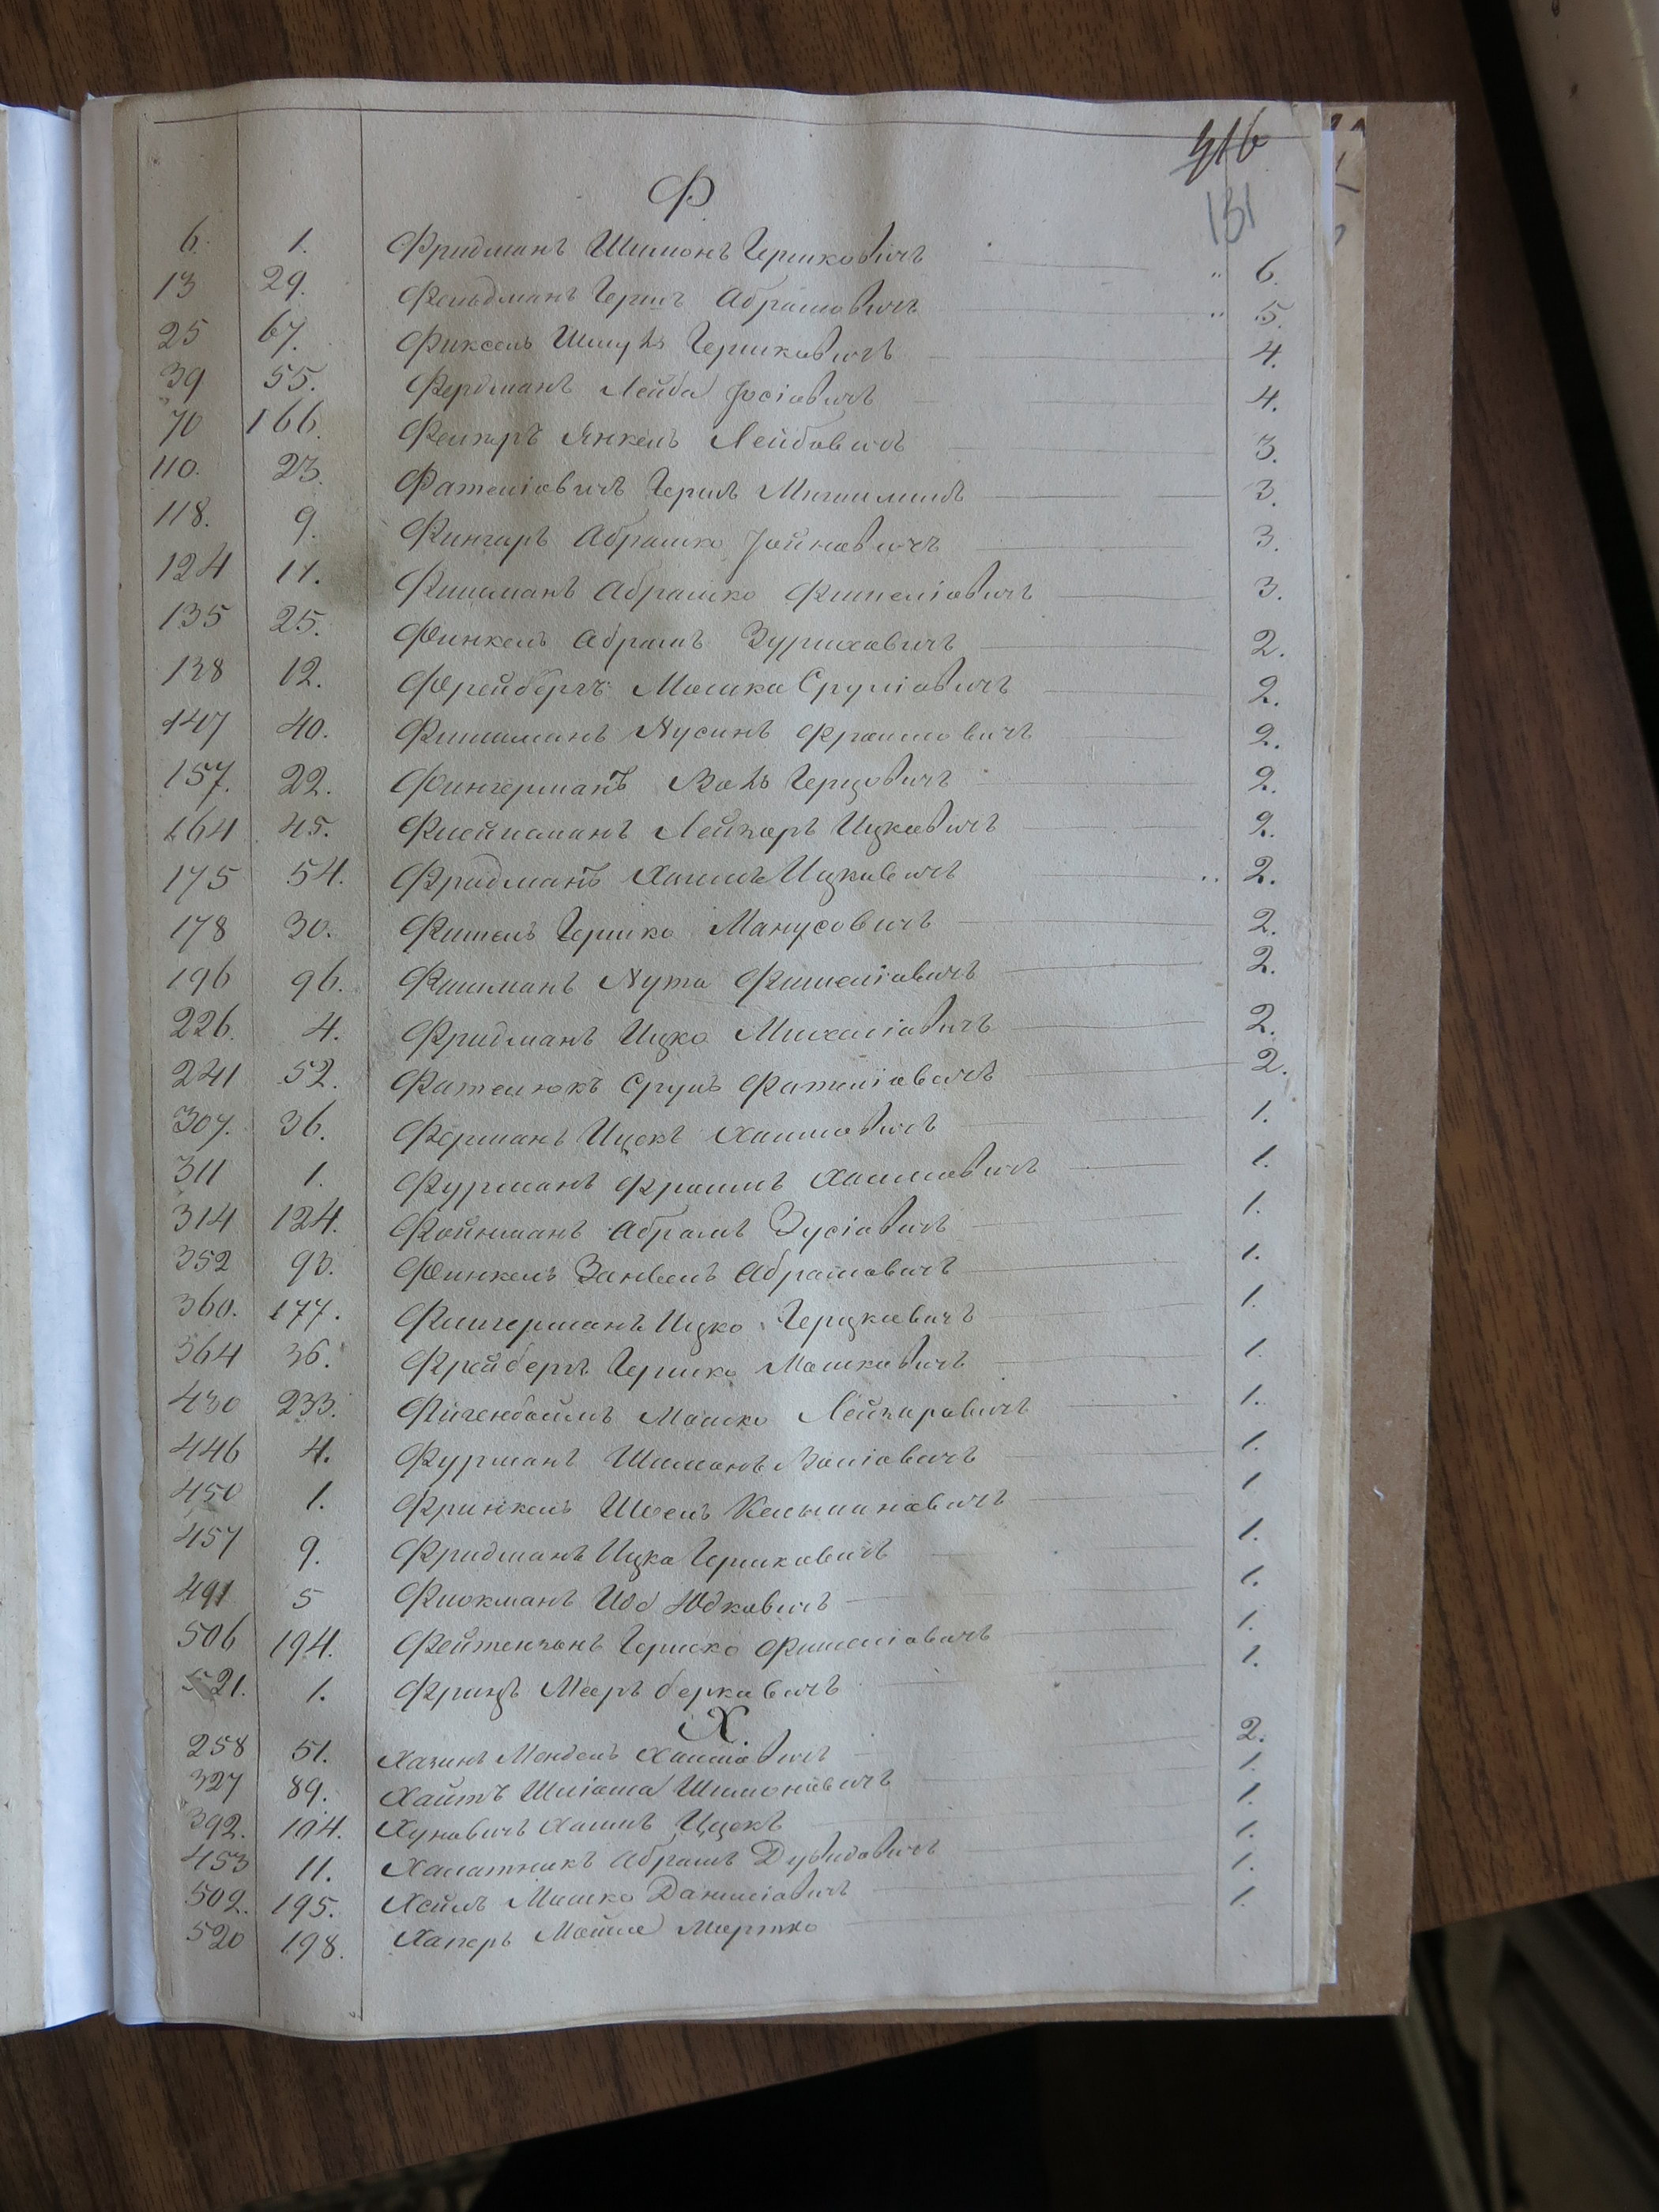 416
131
Ф
6. 1. Фридманъ Шимонъ Гершковичъ 6.
13 29. Фельдманъ Гершъ Абрамовичъ 5.
25 67. Фиксель Шмуль Гершковичъ 4.
39 55. Фердманъ Лейба Іосіовичъ 4.
70 166. Янкель Лейбовичъ 3.
110. 23. Фателіовичъ Гершъ 3.
118. 9. Фингеръ Абрамко Іойновичъ 3.
124 11. Фишманъ Абрамко Фишеліовичъ 3.
135 25. Финкель Абрамъ 2.
138 12. Фрейбергъ Мошка Сруліовичъ 2.
147 40. Фишманъ Нусинъ Фроимовичъ 2.
157. 22. Фингерманъ Воль Герцовичъ 2.
164 45. Флейшманъ Лейзеръ Ицковичъ 2.
175 54. Фридманъ Хаимъ Ицковичъ 2.
178 30. Фишель Гершко Манусовичъ 2.
196 96. Фишманъ Нута Фишеліовичъ 2.
226. 4. Фридманъ Ицко Михеліовичъ 2.
241 52. Фателюкъ Сруль Фателіовичъ 2.
307. 36. Ферманъ Ицекъ Хаимовичъ 1.
311 1. Фурманъ Фроимъ Хаимовичъ 1.
314 124. Фойнманъ Абрамъ Зусіовичъ 1.
352 93. Финкель Занвель Абрамовичъ 1.
360. 177. Фингерманъ Ицко Герцковичъ 1.
364 36. Фрейбергъ Гершко Мошковичъ 1.
430 233. Фигенбоймъ Мошко Лейзеровичъ 1.
446 4. Фурманъ Шимонъ Воліовичъ 1.
450 1. Фринкель Шоель Кельмановичъ 1
457 9. Фридманъ Ицка Гершковичъ 1.
491 5 Фиокманъ Юдковичъ 1.
506 194. Гершко Фишеліовичъ 1.
521. 1. Фринъ Мееръ Берковичъ 1.
Х
258 51. Хазинъ Мендель Хаимовичъ 2.
327 89. Хаитъ Шліома Шимоновичъ 1.
392. 104. Хуновичъ Хаимъ Ицекъ 1.
453 11. Халатникъ Абрамъ Дувидовичъ 1.
502. 195. Хеймъ Мошко Даниліовичъ 1.
520 198. Хаперъ Мойше 1.